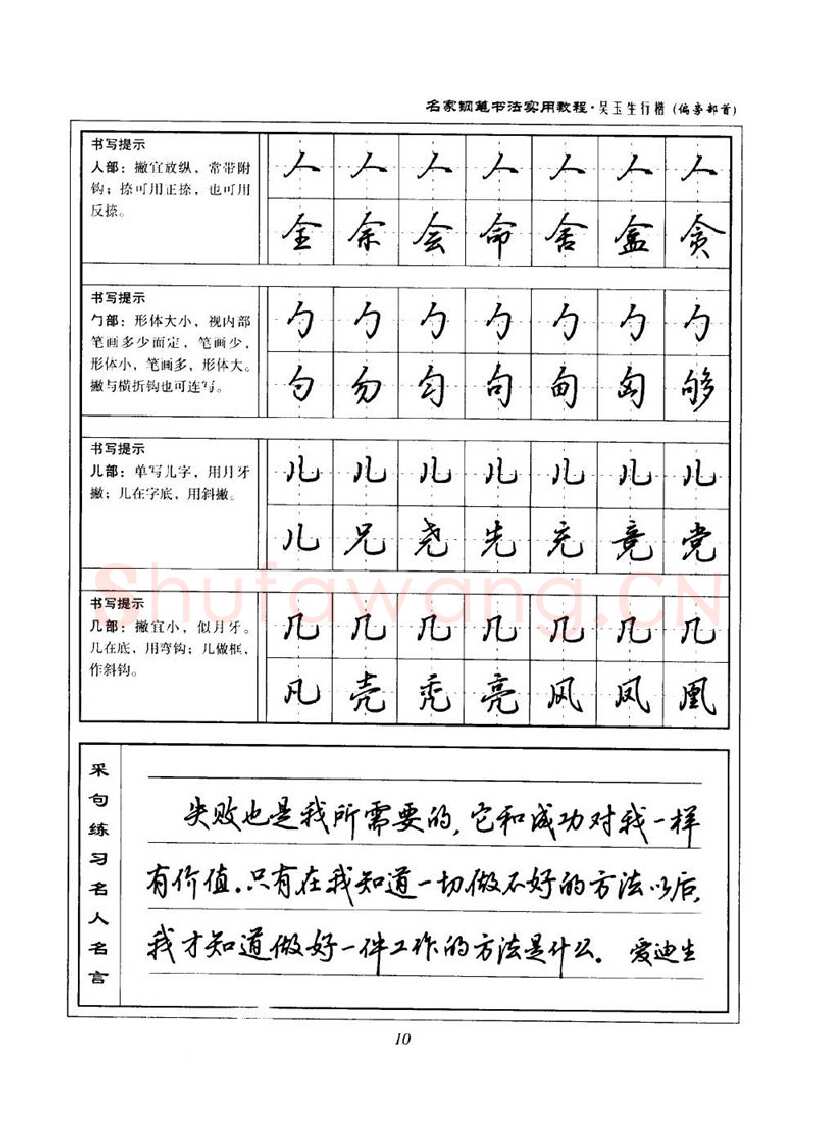 名家钢笔书法实用教程·吴玉生行楷(偏旁部首)
书写提示
人部：撇宜放纵，常带附
钩；捺可用正捺，也可用
反捺。
人 人 人 人 人 人 人
全 余 会 命 舍 盒 贪
书写提示
勹部：形体大小，视内部
笔画多少而定，笔画少，
形体小，笔画多，形体大。
撇与横折钩也可连写。
勹 勹 勹 勹 勹 勹 勹
勺 勿 匀 句 甸 匈 够
书写提示
儿部：单写儿字，用月牙
撇；儿在字底，用斜撇。
儿 儿 儿 儿 儿 儿 儿
儿 兄 尧 先 充 竟 党
书写提示
几部：撇宜小，似月牙。
几在底，用弯钩；几做框，
作斜钩。
几 几 几 几 几 几 几
凡 壳 秃 亮 风 凤 凰
Shufawang.CN
采句练习名人名言
失败也是我所需要的，它和成功对我一样
有价值。只有在我知道一切做不好的方法以后，
我才知道做好一件工作的方法是什么。 爱迪生
10